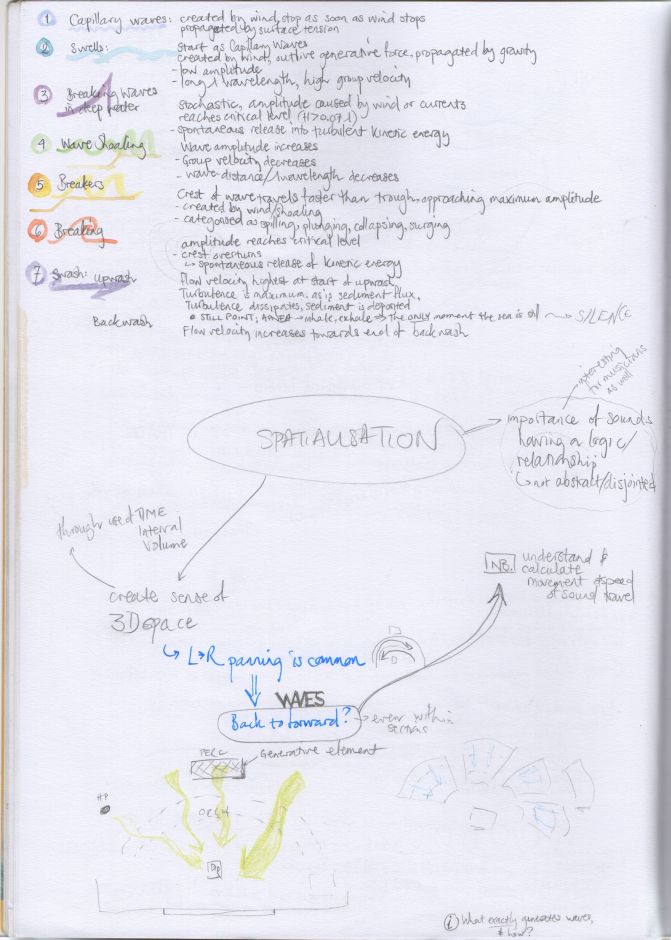 1 Capillary waves: created by wind, stop as soon as wind stops
propagated by surface tension
2 Swells: Start as Capillary Waves
created by wind, outlive generative force, propagated by gravity
- low amplitude
- long λ wavelength, high group velocity
3 Breaking Waves
in deep water
Stochastic, amplitude caused by wind or currents
reaches critical level (H>0.07λ)
- spontaneous release into turbulent kinetic energy
4 Wave Shoaling
Wave amplitude increases
- Group velocity decreases
- wave distance/λ wavelength decreases
5 Breakers
Crest of wave travels faster than trough, approaching maximum amplitude
- created by wind/shoaling
- categorised as spilling, plunging, collapsing, surging
6 Breaking
amplitude reaches critical level
- crest overturns
↳ spontaneous release of kinetic energy
7 Swash: upwash
Flow velocity highest at start of upwash
Turbulence is maximum, as is sediment flux,
Turbulence dissipates, sediment is deposited
• STILL POINT; APNEA → inhale, exhale ⇒ the ONLY moment the sea is still → SILENCE
Backwash Flow velocity increases towards end of backwash
interesting
for musicians
as well
SPATIALISATION
importance of sounds
having a logic/
relationship
↳ not abstract/disjointed
through use of TIME
Interval
Volume
create sense of
3D space
NB. understand &
calculate
movement & speed
of sound travel
↳ L→R panning is common
WAVES
Back to forward?
→ even within
strings
PERC
Generative element
HP
ORCH
i What exactly generates waves,
& how?